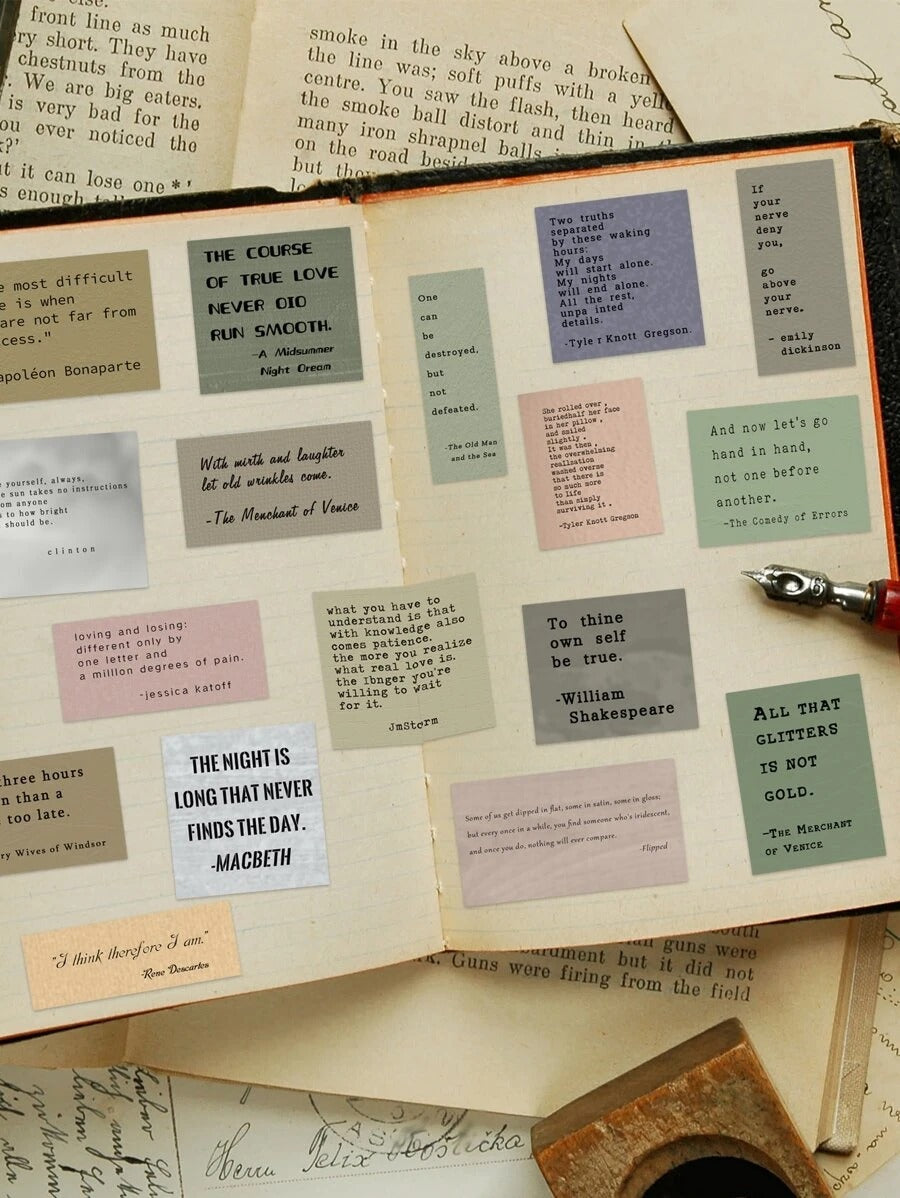 else.
front line as much
ry short. They have
chestnuts from the
. We are big eaters.
is very bad for the
ou ever noticed the
k?'
t it can lose one
s enough
smoke in the sky above a broken
the line was; soft puffs with a
centre. You saw the flash, then heard
the smoke ball distort and thin in
many iron shrapnel balls
on the road
but
e most difficult
e is when
are not far from
cess."
apoléon Bonaparte
THE COURSE
OF TRUE LOVE
NEVER DID
RUN SMOOTH.
-A Midsummer
Night Dream
e yourself, always,
e sun takes no instructions
om anyone
s to how bright
should be.
clinton
With mirth and laughter
let old wrinkles come.
-The Menchant of Venice
loving and losing:
different only by
one letter and
a million degrees of pain.
-jessica katoff
what you have to
understand is that
with knowledge also
comes patience.
the more you realize
what real love is.
the lbnger you're
willing to wait
for it.
JmStorm
three hours
n than a
too late.
ry Wives of Windsor
THE NIGHT IS
LONG THAT NEVER
FINDS THE DAY.
-MACBETH
"I think therefore I am."
-Rene Descartes
One
can
be
destroyed,
but
not
defeated.
-The Old Man
and the Sea
Two truths
separated
by these waking
hours:
My days
will start alone.
My nights
will end alone.
All the rest,
unpa inted
details.
-Tyle r Knott Gregson.
If
your
nerve
deny
you,
go
above
your
nerve.
- emily
dickinson
She rolled over ,
buriedhalf her face
in her pillow ,
and smiled
slightly .
It was then ,
the overwhelming
realization
washed overse
that there is
so much more
to life
than simply
surviving it .
-Tyler Knott Gregson
And now let's go
hand in hand,
not one before
another.
-The Comedy of Errors
To thine
own self
be true.
-William
Shakespeare
ALL THAT
GLITTERS
IS NOT
GOLD.
-THE MERCHANT
OF VENICE
Some of us get dipped in flat, some in satin, some in gloss;
but every once in a while, you find someone who's iridescent,
and once you do, nothing will ever compare.
-Flipped
guns were
but it did not
Guns were firing from the field
Herrn Felix